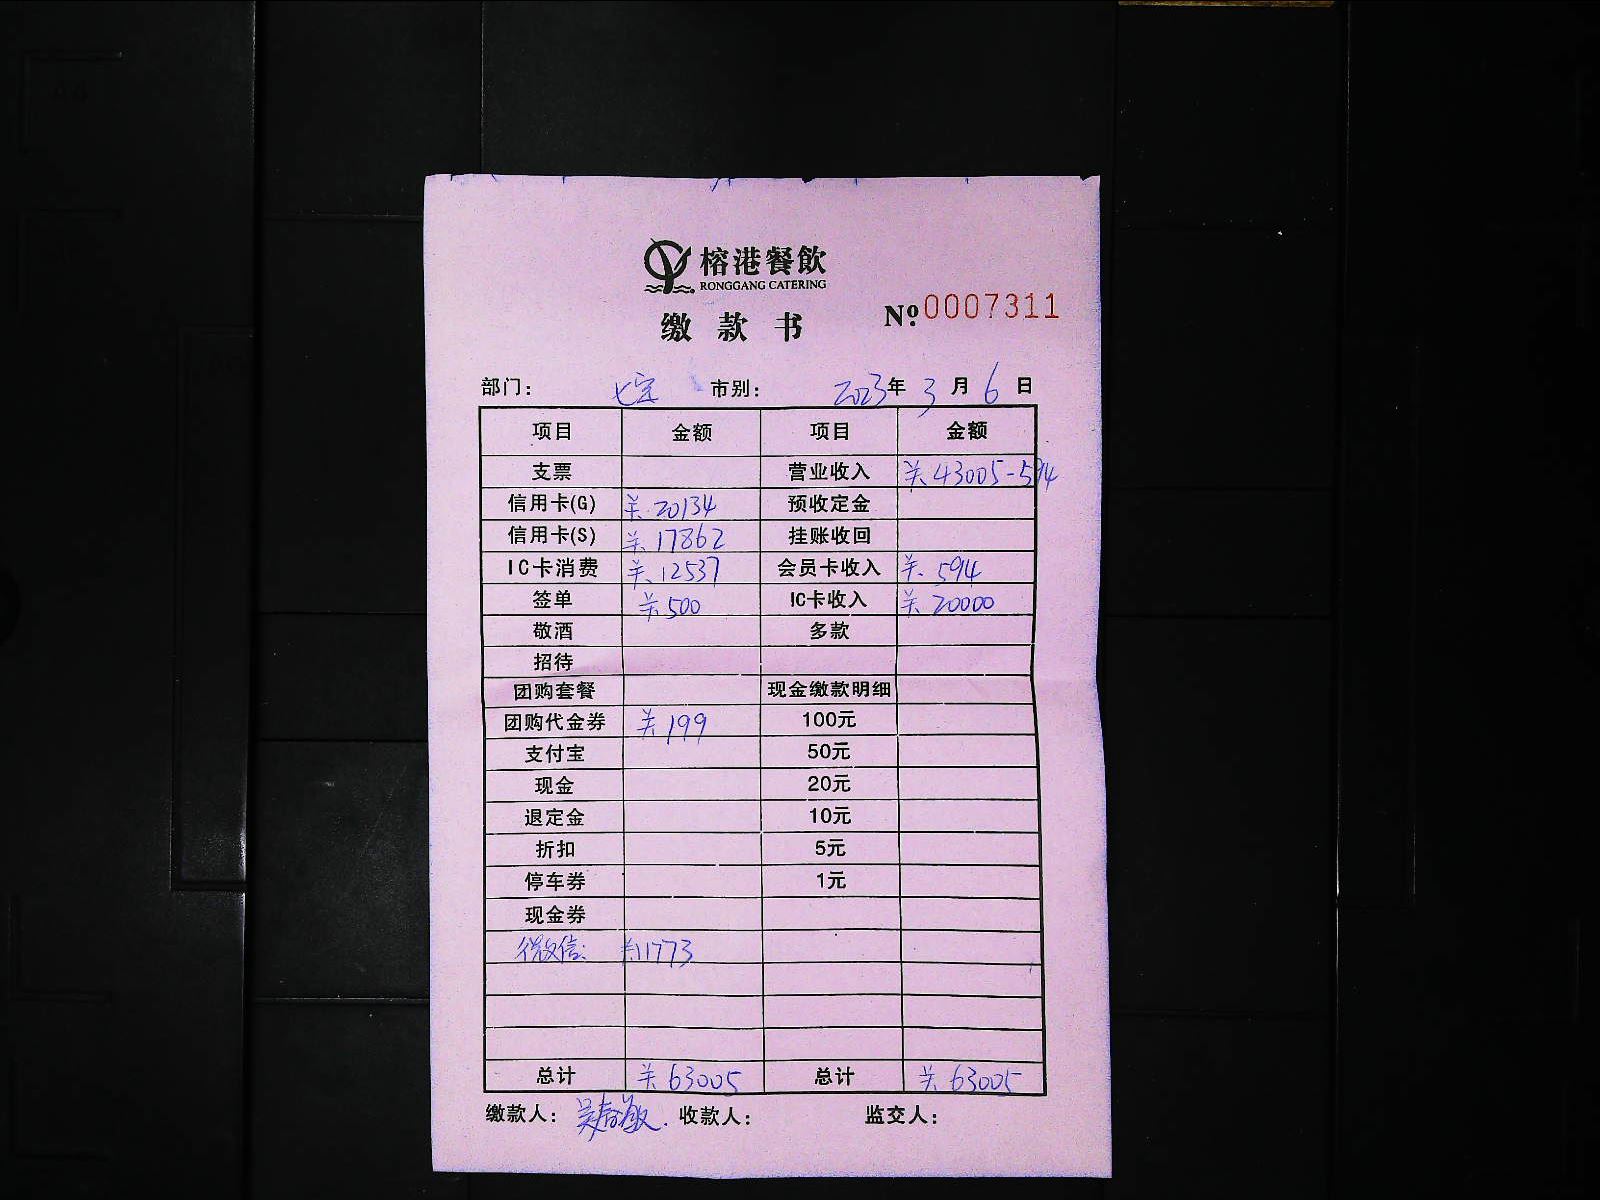 榕港餐飲
RONGGANG CATERING
缴款书 № 0007311
部门: 七宝 市别: 2023年3月6日
项目 金额 项目 金额
支票 营业收入 ¥43005-594
信用卡(G) ¥20134 预收定金
信用卡(S) ¥17862 挂账收回
IC卡消费 ¥12537 会员卡收入 ¥594
签单 ¥500 IC卡收入 ¥20000
敬酒 多款
招待
团购套餐 现金缴款明细
团购代金券 ¥199 100元
支付宝 50元
现金 20元
退定金 10元
折扣 5元
停车券 1元
现金券
微信: ¥11773
总计 ¥63005 总计 ¥63005
缴款人: 吴春敏. 收款人: 监交人: